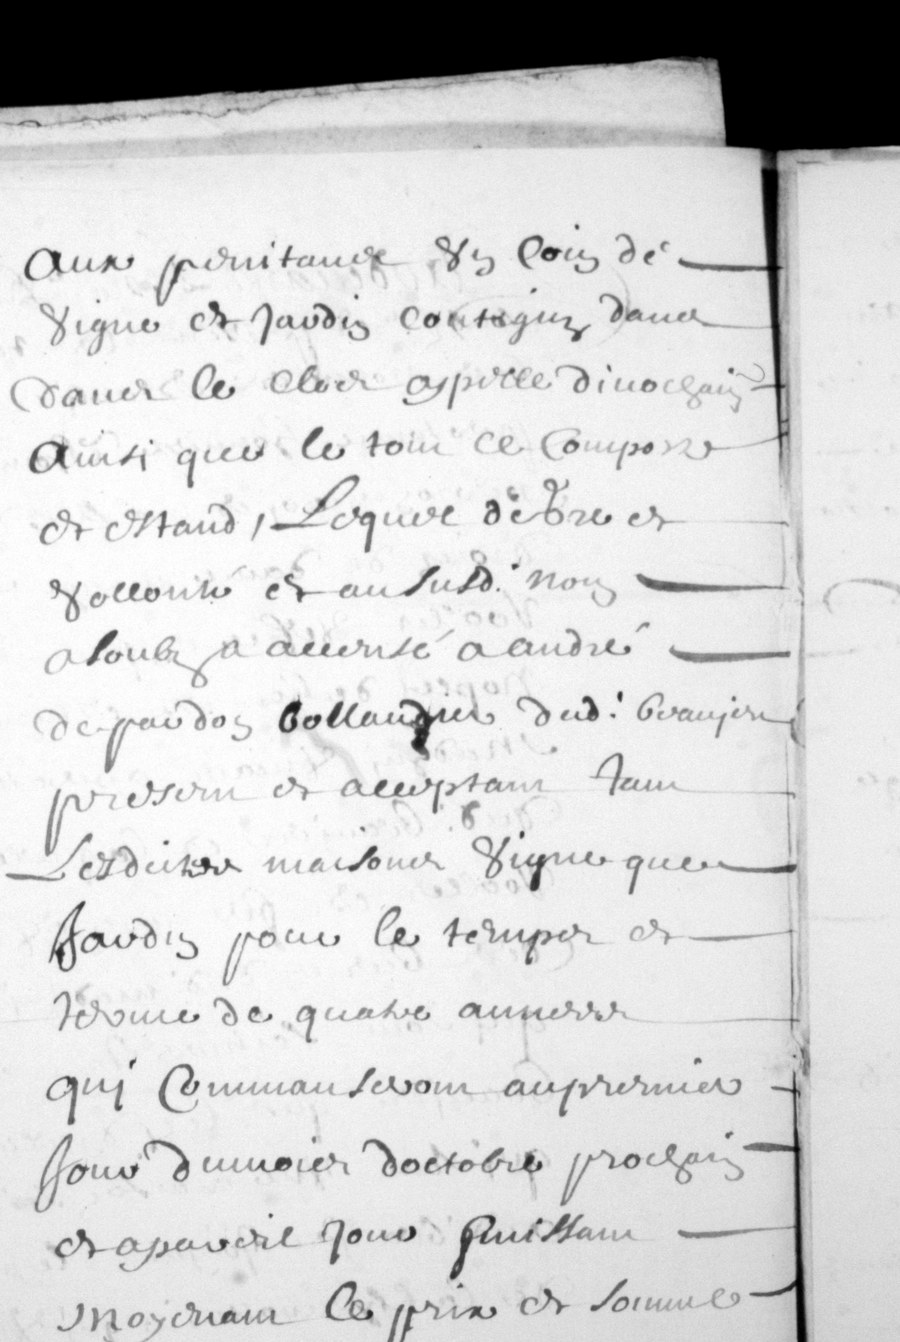 aux penitance Un Coin de
Vigne et Jardin contegus dans
dans le Clos appelle dinochain
Ainsi que le tout ce Compose
et estand, Lequel de gré et
Vollonté et au susd. nom
a loué a accensé a André
de pardon bollandier dud. beaujeu
present et acceptant tant
Lesdittes maisons Vigne que
Jardin pour le temps et
terme de quatre annees
qui Commanseront au premier
Jour du mois doctobre prochain
et a pareil Jour finissant
Moyenant le prix et somme